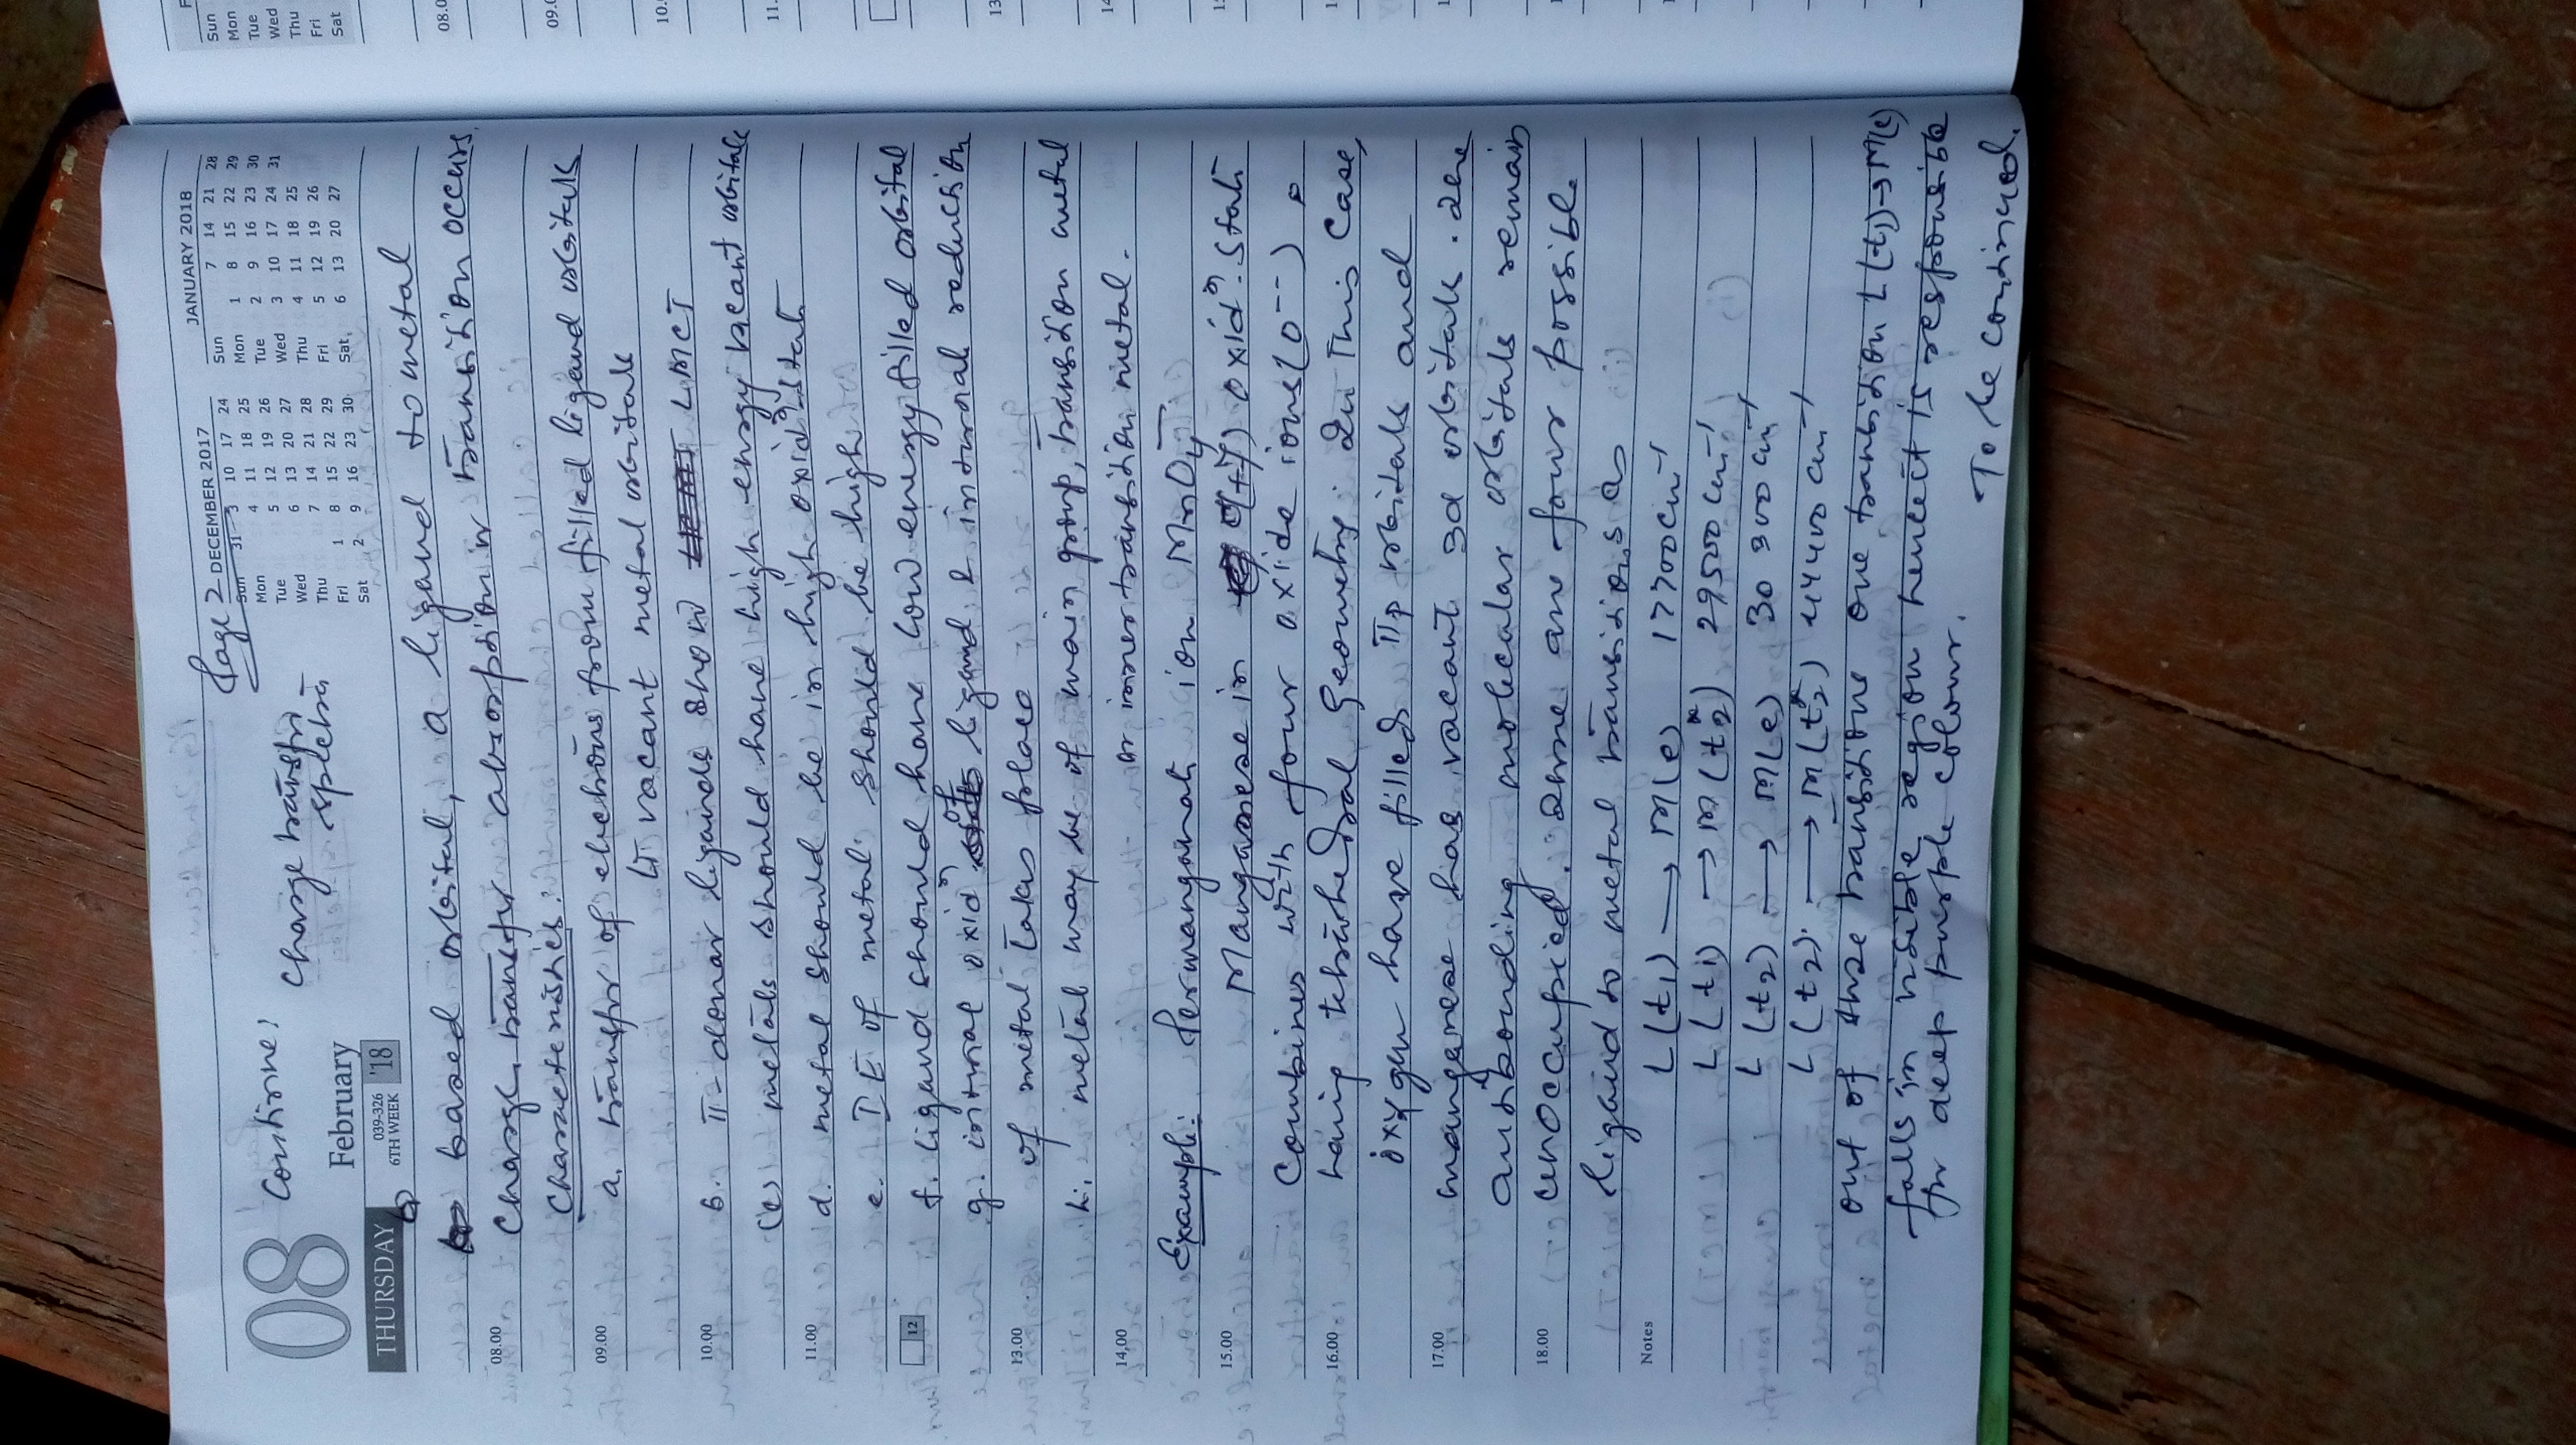 08
Continue!
Page 2
Charge transfer
spectra
February
THURSDAY
039-326
6TH WEEK
'18
DECEMBER 2017
Sun 31 3 10 17 24
Mon 4 11 18 25
Tue 5 12 19 26
Wed 6 13 20 27
Thu 7 14 21 28
Fri 1 8 15 22 29
Sat 2 9 16 23 30
JANUARY 2018
Sun 7 14 21 28
Mon 1 8 15 22 29
Tue 2 9 16 23 30
Wed 3 10 17 24 31
Thu 4 11 18 25
Fri 5 12 19 26
Sat 6 13 20 27
based orbital, a ligand to metal
08.00
Charge transfer absorption or transition occurs.
Characteristics:
09.00
a. transfer of electrons from filled ligand orbitals
to vacant metal orbitals
10.00
b. π-donar ligands show LMCT
(c) metals should have high energy vacant orbitals
11.00
d. metal should be in high oxidn state
e. IE of metal should be high
12
f. ligand should have low energy filled orbital
g. internal oxidn of ligand & internal reduction
13.00
of metal takes place
h. metal may be of main group, transition metal
14.00
or inner transition metal.
Example: Permanganate ion MnO4-
15.00
Manganese in (+7) oxidn. state
Combines with four oxide ions (O--)
16.00
having tetrahedral geometry. In this case,
oxygen have filled πp orbitals and
17.00
manganese has vacant 3d orbitals. The
antibonding molecular orbitals remain
18.00
unoccupied. There are four possible
ligand to metal transitions as
Notes
L(t1) → M(e) 17700 cm-1
L(t1) → M(t2*) 29500 cm-1
L(t2) → M(e) 30300 cm-1
L(t2) → M(t2*) 44400 cm-1
out of these transitions one transition L(t1)→M(e)
falls in visible region hence it is responsible
for deep purple colour.
To be continued.